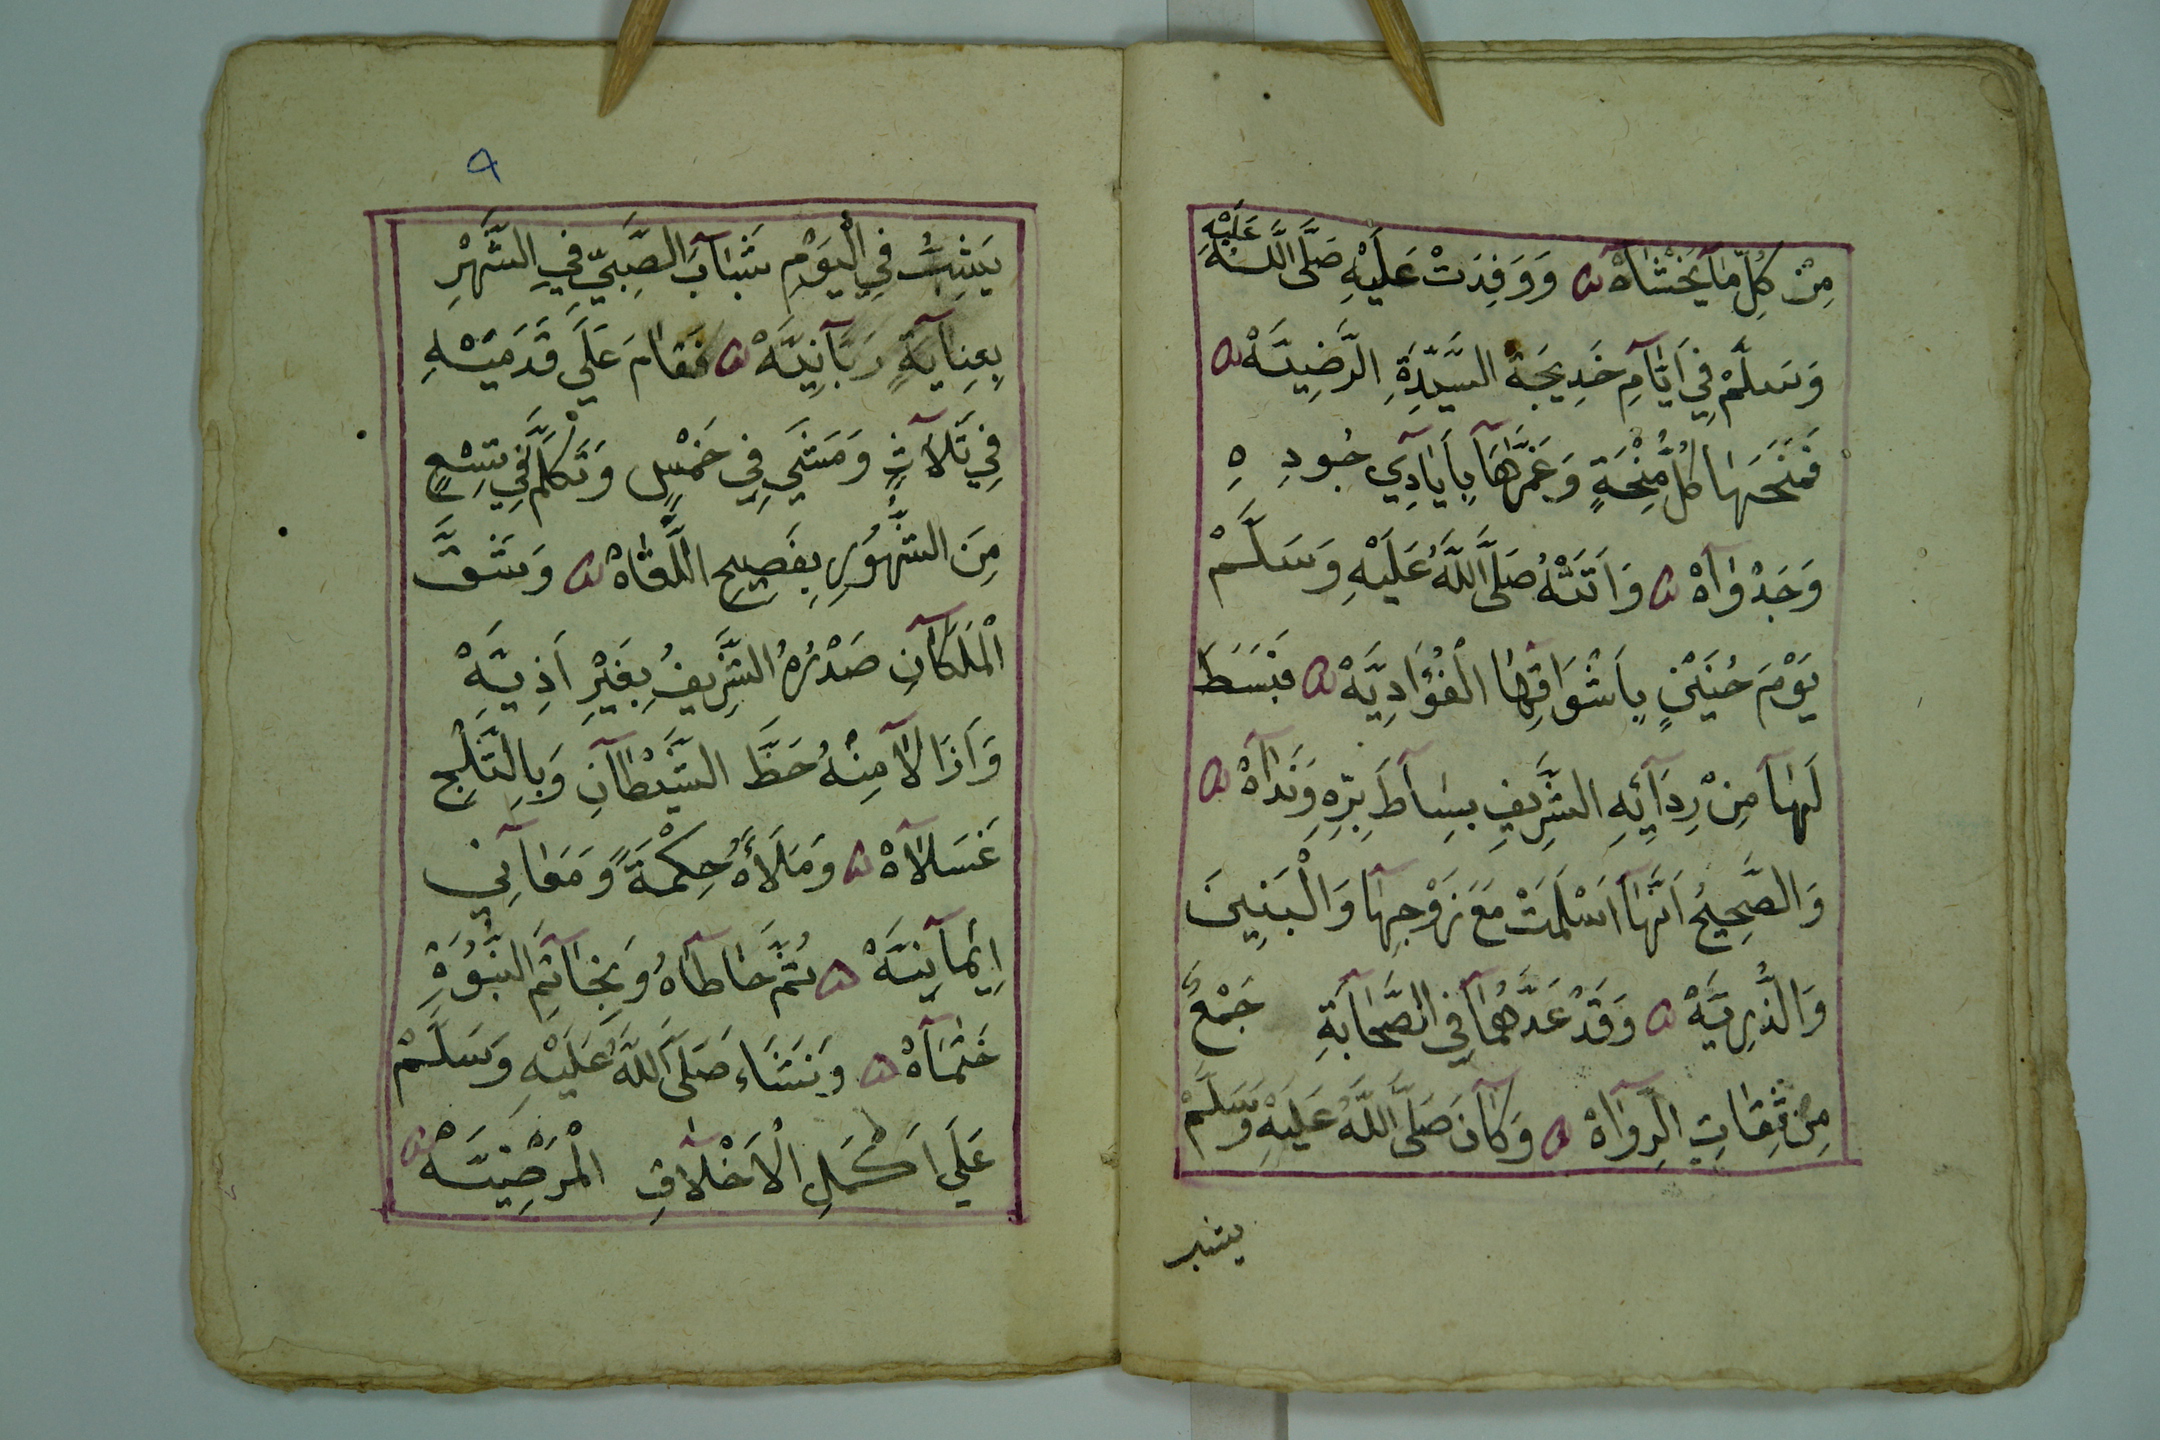 مِنْ كُلِّ مَا يَخْشَاهْ ۵ وَوَفِدَتْ عَلَيْهِ صَلَّى اللّٰهُ عَلَيْهِ
وَسَلَّمْ فِي اَيَّآمِ خَدِيجَةَ السَّيِّدَةِ الرَّضِيَّهْ ۵
فَمَنَحَهَا كُلَّ مِّنْحَةٍ وَغَمَّرَهَآ بِاَيَادِي جُودِهِ
وَجَدْوَآهْ ۵ وَاَتَتْهُ صَلَّى اللَّهُ عَلَيْهِ وَسَلَّمْ
يَوْمَ حُنَيْنٍ بِاَشْوَاقِهَا الْفُؤَادِيَّهْ ۵ فَبَسَطَ
لَهَآ مِنْ رِدَآئِهِ الشَّرِيفِ بِسَآطَ بِرِّهِ وَنَدَآهْ ۵
وَالصَّحِيحُ اَنَّهَآ اَسْلَمَتْ مَعَ زَوْجِهَآ وَالْبَنِينَ
وَالذُّرِيَّهْ ۵ وَقَدْ عَدَّهُمَآ فِي الصَّحَآبَةِ جَمْعٌ
مِنْ ثِقَاتِ الرِوَآهْ ۵ وَكَآنَ صَلَّى اللَّهُ عَلَيْهِ وَسَلَّمْ
يشب
٩
يَشِبُّ فِي الْيَوْمِ شَبَآبَ الصَّبِيِّ فِي الشَّهْرِ
بِعِنَايَةٍ رَبَّآنِيَّهْ ۵ فَقَامَ عَلَي قَدَمَيْهِ
فِي ثَلَآثٍ وَمَشَي فِي خَمْسٍ وَتَكَلَّمَ فِي تِسْعٍ
مِنَ الشُّهُورِ بِفَصِيحِ اللُّغَاهْ ۵ وَشَقَّ
الْمَلَكَآنِ صَدْرُهُ الشَّرِيفُ بِغَيْرِ اَذِيَّهْ
وَاَزَالَآ مِنْهُ حَظَّ الشَّيْطَآنِ وَبِالثَّلْجِ
غَسَلَآهْ ۵ وَمَلَأَهُ حِكْمَةً وَمَعَآنِي
اِيْمَآنِيَّهْ ۵ ثُمَّ خَاطَآهُ وَبِخَآتَمِ النُّبُوَّةِ
خَتَمَآهْ ۵ وَنَشَاءَ صَلَّى اللَّهُ عَلَيْهِ وَسَلَّمْ
عَلَي اَكْمَلِ الْاَخْلَآقِ الْمَرْضِيَّهْ ۵